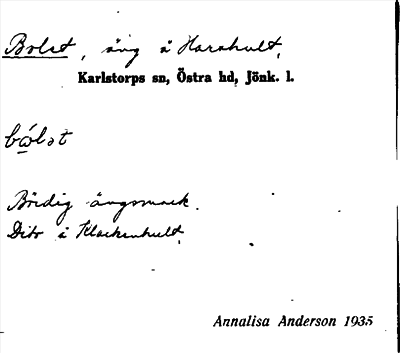 Bolet, äng å Harahult,
Karlstorps sn, Östra hd, Jönk. l.
bɷ́lət
Bördig ängsmark.
Dito å Klackenhult.
Annalisa Anderson 1935